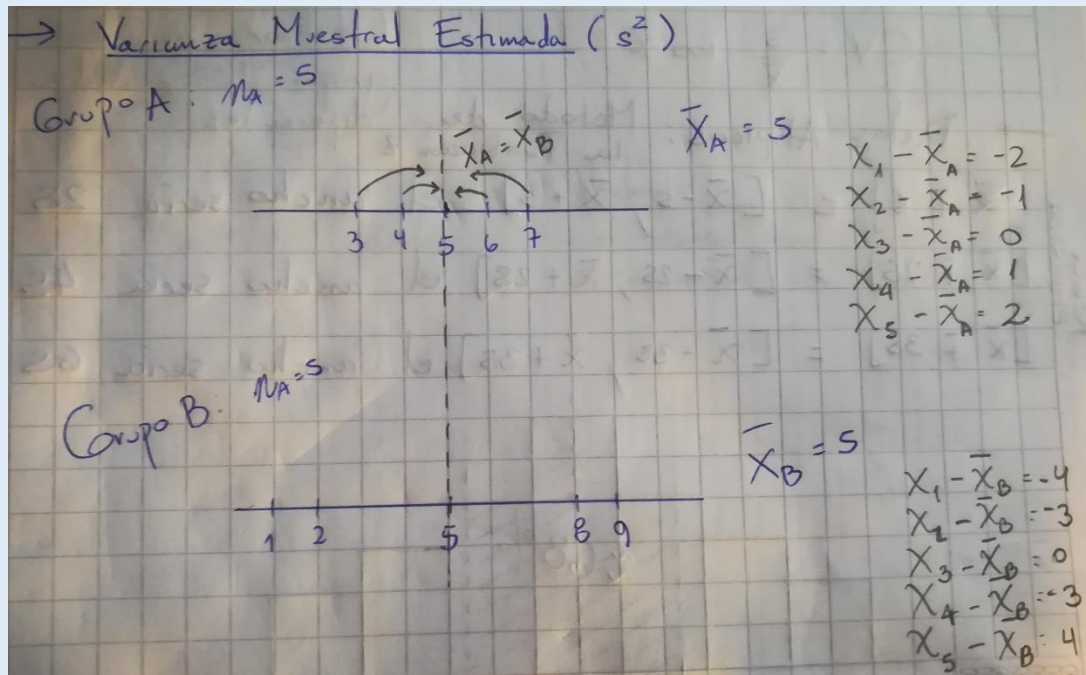 → Varianza Muestral Estimada (s²)
Grupo A: n_A = 5
X̄_A = X̄_B
X̄_A = 5
3 4 5 6 7
X₁ - X̄_A = -2
X₂ - X̄_A = -1
X₃ - X̄_A = 0
X₄ - X̄_A = 1
X₅ - X̄_A = 2
Grupo B: n_A = 5
X̄_B = 5
1 2 5 8 9
X₁ - X̄_B = -4
X₂ - X̄_B = -3
X₃ - X̄_B = 0
X₄ - X̄_B = -3
X₅ - X̄_B = 4